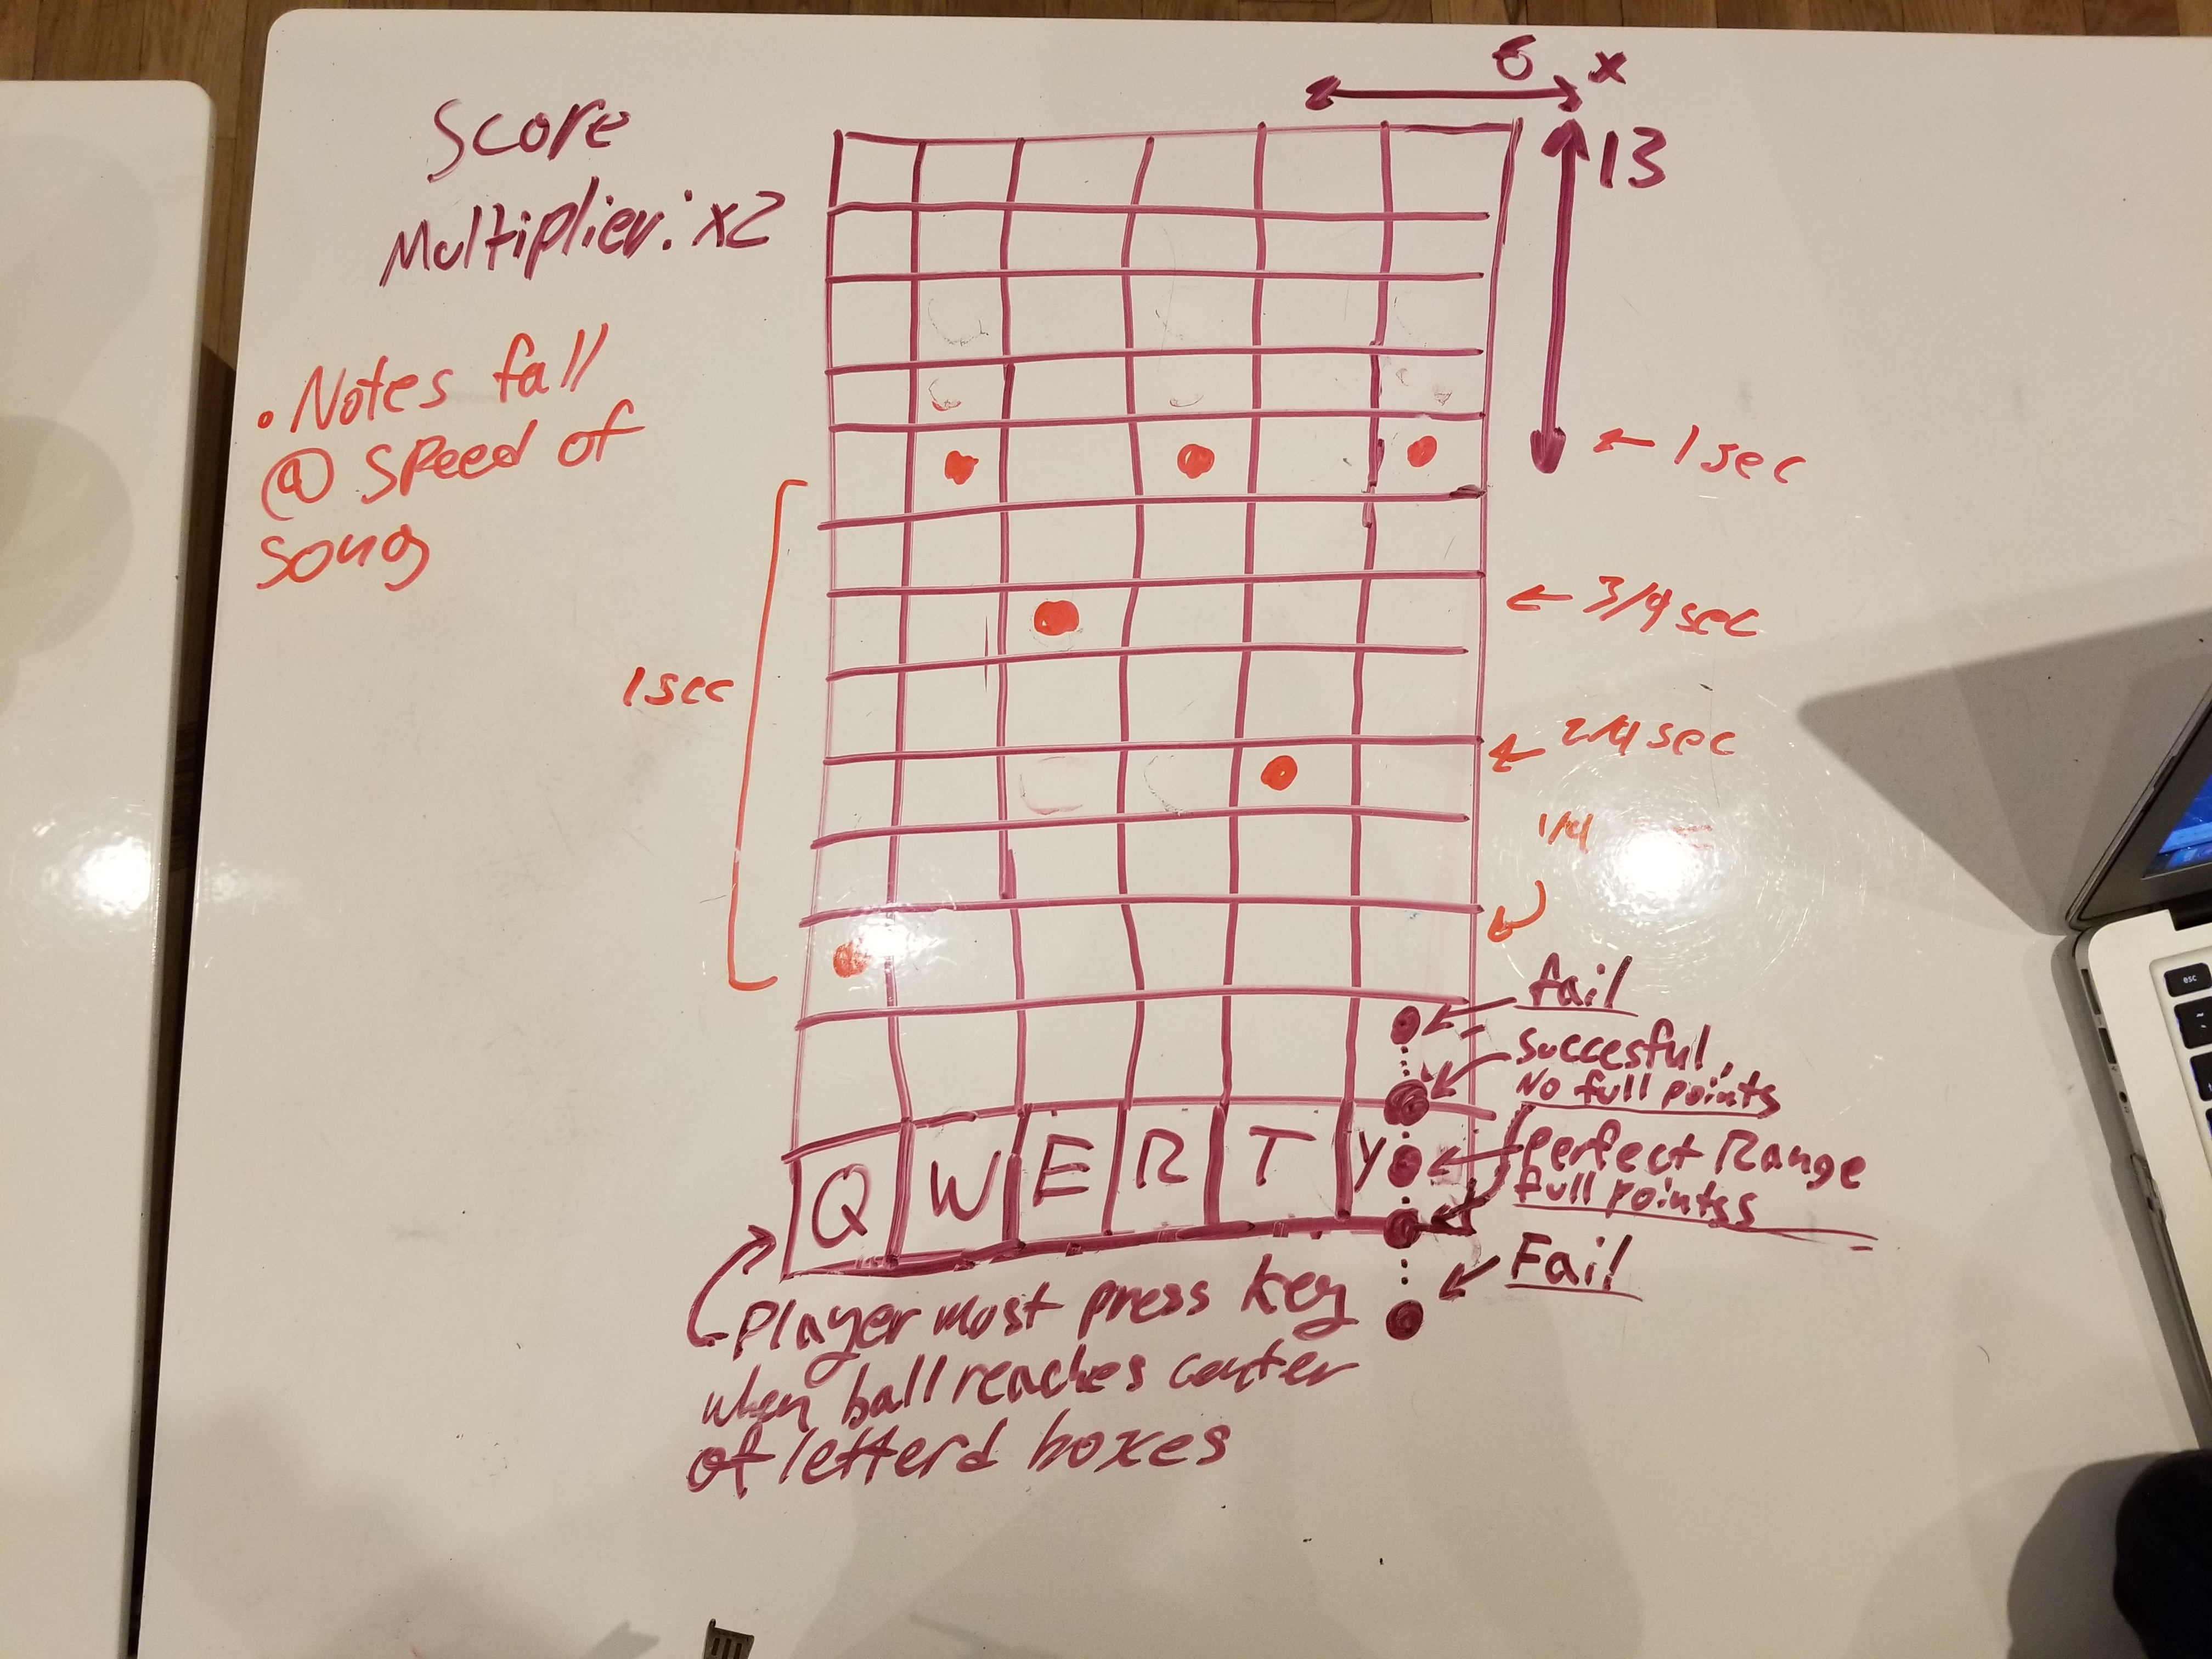 6 x
13
Score
Multiplier: x2
• Notes fall
@ speed of
song
← 1 sec
← 3/4 sec
1 sec
← 2/4 sec
1/4
fail
Succesful,
No full points
Perfect Range
full pointss
Fail
Q W E R T Y
Player most press key
when ball reaches center
of letterd boxes
esc